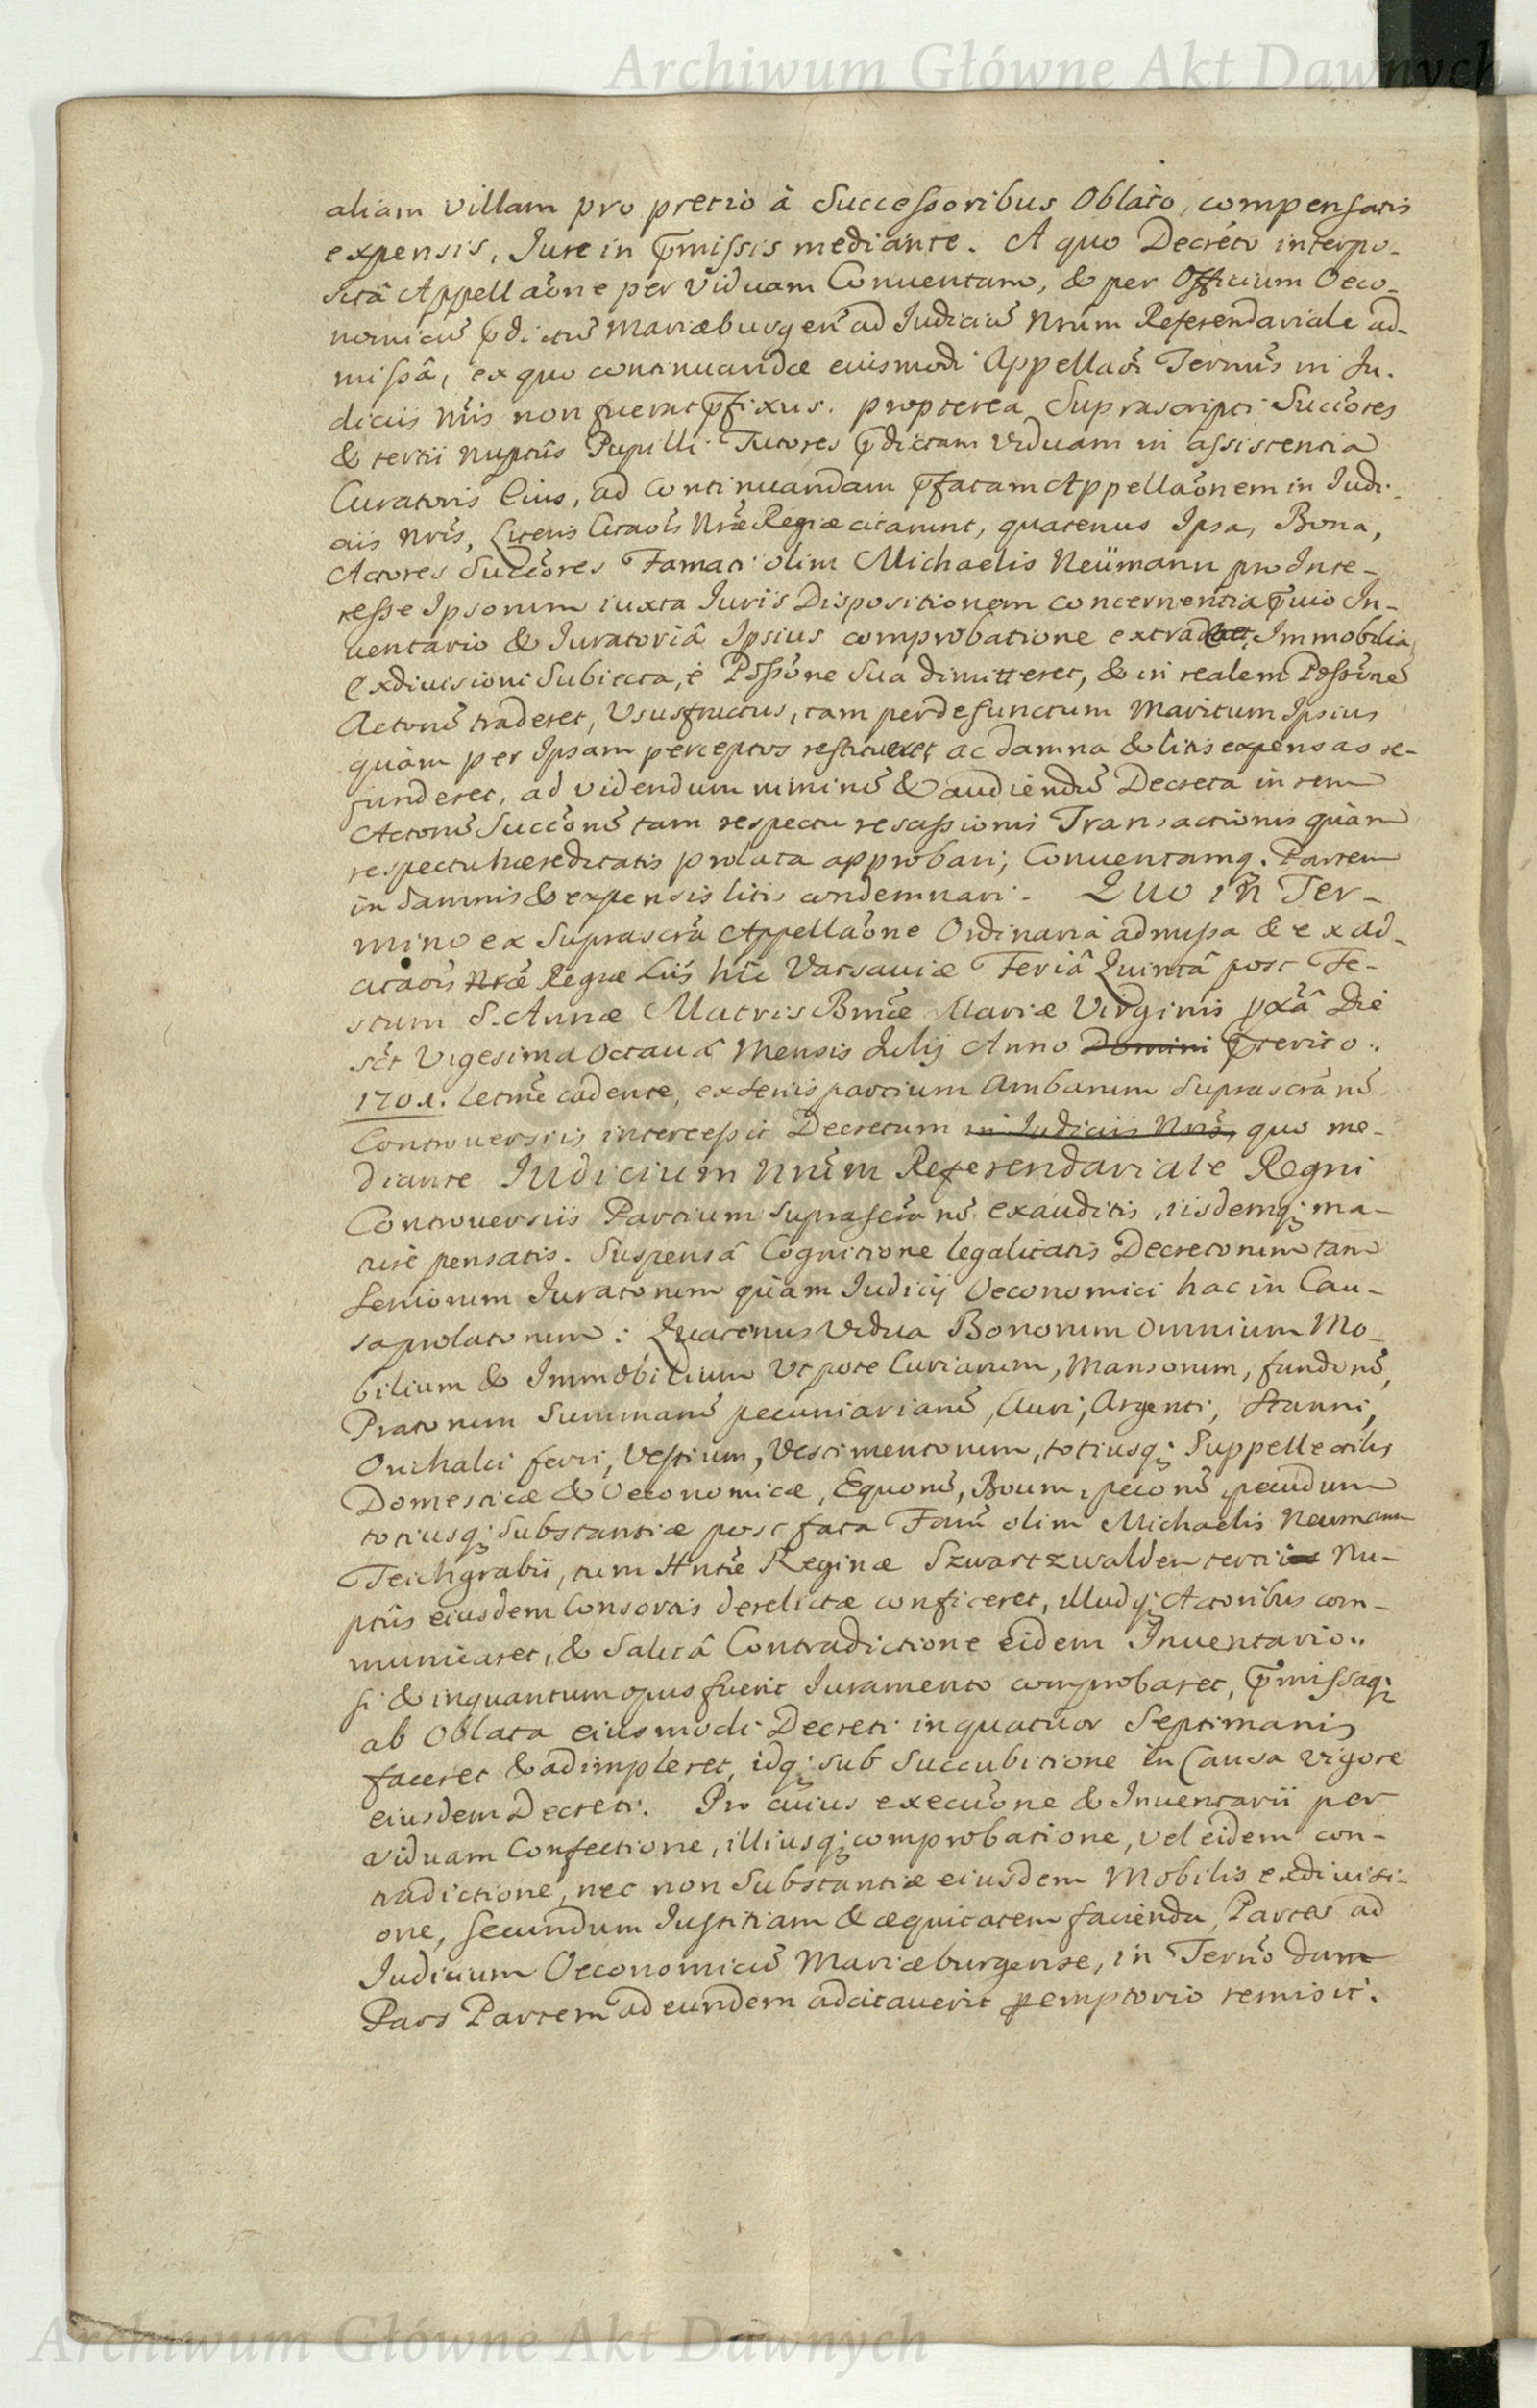 Archiwum Główne Akt Dawnych
aliam villam pro pretio à Successoribus Oblato, compensatis
expensis, Iure in p̄missis mediante. A quo Decreto interpo-
sitâ Appellaõne per Viduam Conuentam, & per Officium Oeco-
nomicũ p̄dictũ Mariæburgeñ ad Iudiciũ Nrũm Referendariale ad-
missâ, ex quo continuandæ eiusmodi Appellaõi Termũs in Iu-
diciis Nr̃is non fuerat p̄fixus. propterea Suprascripti Succõres
& tertii nuptũs Pupilli Tutores p̄dictam Viduam in assistentia
Curatoris Eius, ad continuandam p̄fatam Appellaõnem in Iudi-
ciis Nr̃is, Literis Citaõis Nr̃æ Regiæ citarunt, quatenus Ipsa, Bona,
Actores Succõres Famati olim Michaelis Neümann pro Inte-
resse Ipsorum iuxta Iuris Dispositionem concernentia p̄uio In-
uentario & Iuratoriâ Ipsius comprobatione extraderet, Immobilia
exdiuisioni Subiecta, è Possõne Sua dimitteret, & in realem Possõnẽ
Actorũ traderet, Vsusfructus, tam per defunctum Maritum Ipsius
quàm per Ipsam perceptos restitueret, ac damna & litis expensas re-
funderet, ad videndum niminũ & audiendũ Decreta in rem
Actorũ Succõrũ tam respectu rescissionis Transactionis quàm
respectu hæreditatis prolata approbari, Conuentamq; Partem
in damnis & expensis litis condemnari. Quo in Ter-
mino ex Suprascr̃a Appellaõne Ordinaria admissa & ex ad-
citaõis Nr̃æ Regiæ Lris hîc Varsauiæ Feriâ Quintâ post Fe-
stum S. Annæ Matris Bmæ Mariæ Virginis px̃â Die
sc̃t Vigesima Octauâ Mensis Iulij Anno Domini p̄terito..
1701. letme cadente, ex seriis partium Ambarum Suprascr̃a rũ
Controuersiis intercessit Decretum in Iudiciis Nris, quo me-
diante Iudicium Nrũm Referendariale Regni
Controuersiis Partium Suprascr̃a rũ exauditis, iisdemq; ma-
turè pensatis. Suspensâ Cognitione legalitatis Decretorum tam
Seniorum Iuratorum quàm Iudicij Oeconomici hac in Cau-
sa prolatorum: Quatenus Vidua Bonorum Omnium Mo-
bilium & Immobilium Vt pote Curiarum, Mansorum, fundorũ,
Pratorum Summarũ pecuniariarũ, Auri, Argenti, Stanni,
Orichalci ferri, Vestium, Vestimentorum, totiusq; Suppellectilis
Domesticæ & Oeconomicæ, Equorũ, Boum, pecorũ, pecudum
totiusq; Substantiæ post fata Fam̃ olim Michaelis Neumann
Teichgrabii, tum Hntæ Reginæ Szwartzwalden tertiis Nu-
ptiis eiusdem Consortis derelictæ conficeret, illudq; Actoribus com-
municaret, & Saluâ Contradictione eidem Inuentario..
si & inquantum opus fuerit Iuramento comprobaret, p̄missaq;
ab Oblata eiusmodi Decreti in quatuor Septimanis
faceret & adimpleret, idq; sub Succubitione in Causa vigore
eiusdem Decreti. Pro cuius execuõne & Inuentarii per
viduam Confectione, illiusq; comprobatione, vel eidem con-
tradictione, nec non Substantiæ eiusdem Mobilis exdiuisi-
one, Secundum Iustitiam & æquitatem facienda, Partes ad
Iudicium Oeconomicũ Mariæburgense, in Termõ dum
Pars Partem ad eundem adcitauerit peremptorio remisit.
Archiwum Główne Akt Dawnych